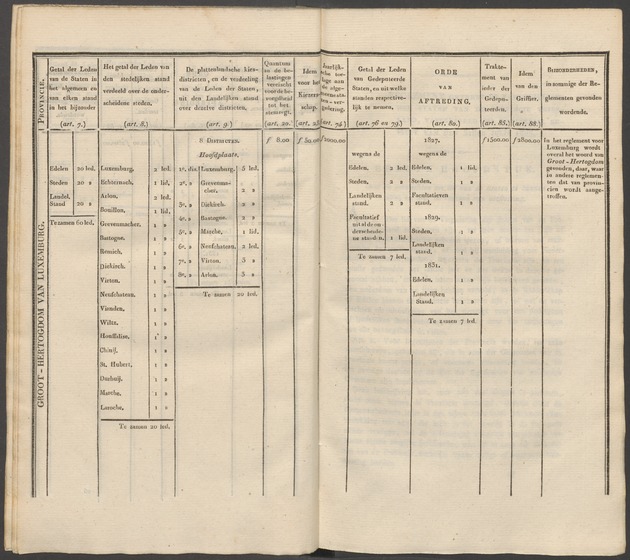 PROVINCIE.
GROOT-HERTOGDOM VAN LUXEMBURG.
Getal der Leden
van de Staten in
het algemeen en
van elken stand
in het bijzonder
(art. 7.)
Edelen 20 led.
Steden 20 »
Landel.
Stand 20 »
Te zamen 60 led.
Het getal der Leden van
den stedelijken stand
verdeeld over de onder-
scheidene steden.
(art. 8.)
Luxemburg. 2 led.
Echternach. 1 lid.
Arlon. 2 led.
Bouillon. 1 lid.
Greevenmacher. 1 »
Bastogne. 1 »
Remich. 1 »
Diekirch. 1 »
Vieten. 1 »
Neufchateau. 1 »
Vienden. 1 »
Wiltz. 1 »
Houffalise. 1 »
Chinij. 1 »
St. Hubert. 1 »
Durbuij. 1 »
Marche. 1 »
Laroche. 1 »
Te zamen 20 led.
De plattelandsche kies-
districten, en de verdeeling
van de Leden der Staten,
uit den Landelijken stand
over dezelve districten.
(art. 9.)
8 DISTRICTEN.
Hoofdplaats.
1e. dist. Luxemburg. 5 led.
2e. » Greevenma-
cher. 2 »
3e. » Diekirch. 2 »
4e. » Bastogne. 2 »
5e. » Marche. 1 lid.
6e. » Neufchateau. 2 led.
7e. » Virton. 3 »
8e. » Arlon. 3 »
Te zamen 20 led.
Quantum
in de be-
lastingen
vereischt
voor de be-
voegdheid
tot het
stemregt.
(art. 20.)
f 8.00
Idem
voor het
Kiezer-
schap.
f 50.00
f 2000.00
Getal der Leden
van Gedeputeerde
Staten, en uit welke
standen respective-
lijk te nemen.
(art. 76 en 79.)
wegens de
Edelen. 2 led.
Steden. 2 »
Landelijken
stand. 2 »
Facultatief
uit al de on-
derscheide-
ne standen. 1 lid.
Te zamen 7 led.
ORDE
VAN
AFTREDING.
(art. 80.)
1827.
wegens de
Edelen. 1 lid.
Steden. 1 »
Facultatieven
stand. 1 »
1829.
Steden. 1 »
Landelijken
stand. 1 »
1831.
Edelen. 1 »
Landelijken
Stand. 1 »
Te zamen 7 led.
Trakte-
ment van
ieder der
Gedepu-
teerden.
(art. 85.)
f 1500.00
Idem
van den
Griffier.
(art. 88.)
f 2800.00
BIJZONDERHEDEN,
in sommige der Re-
glementen gevonden
wordende.
In het reglement voor
Luxemburg wordt
overal het woord van
Groot-Hertogdom
gevonden, daar, waar
in andere reglemen-
ten dat van provin-
cien wordt aange-
troffen.